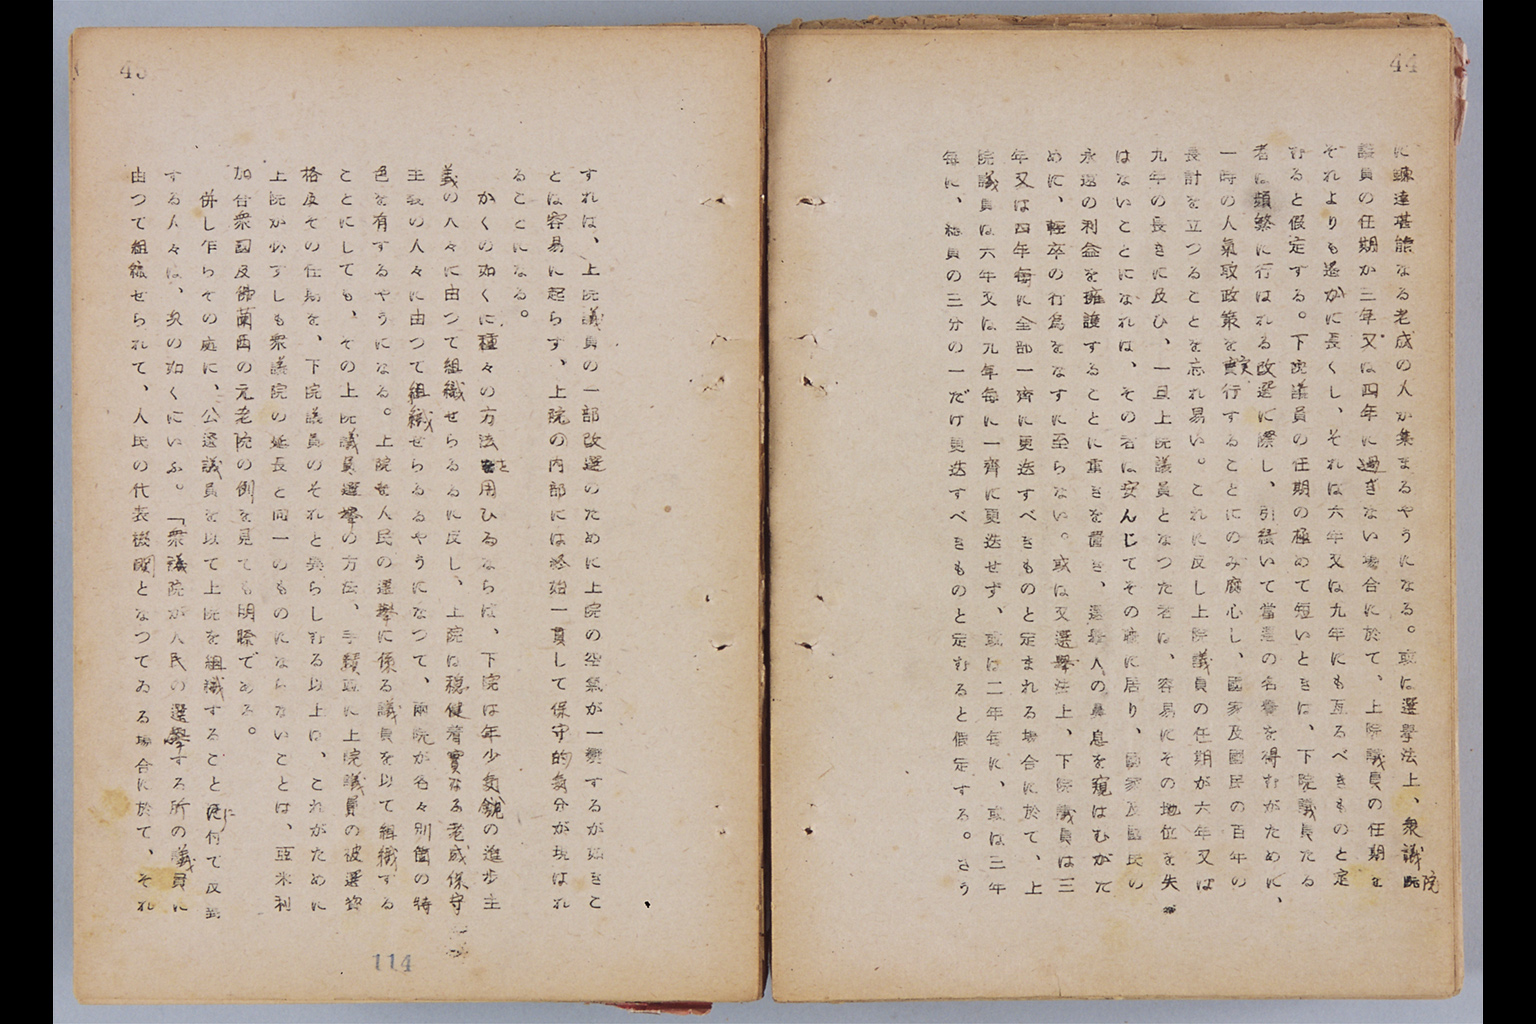 44
に練達堪能なる老成の人が集まるやうになる。或は選擧法上、衆議院
議員の任期か三年又は四年に過ぎない場合に於て、上院議員の任期を
それよりも遥かに長くし、それは六年又は九年にも亙るべきものと定
むると假定する。下院議員の任期の極めて短いときは、下院議員たる
者は頻繁に行はれる改選に際し、引續いて當選の名譽を得むがために、
一時の人氣取政策を實行することにのみ腐心し、國家及國民の百年の
長計を立つることを忘れ易い。これに反し上院議員の任期が六年又は
九年の長きに及ひ、一旦上院議員となつた者は、容易にその地位を失
はないことになれは、その者は安んじてその職に居り、國家及國民の
永遠の利益を擁護することに重きを置き、選擧人の鼻息を窺はむがた
めに、輕卒の行爲をなすに至らない。或は又選擧法上、下院議員は三
年又は四年毎に全部一齊に更迭すべきものと定まれる場合に於て、上
院議員は六年又は九年毎に一齊に更迭せず、或は二年毎に、或は三年
毎に、總員の三分の一だけ更迭すべきものと定むると假定する。さう
45
すれは、上院議員の一部改選のために上院の空氣が一變するが如きこ
とは容易に起らす、上院の内部には終始一貫して保守的氣分が現はれ
ることになる。
かくの如くに種々の方法を用ひるならは、下院は年少氣鋭の進歩主
義の人々に由つて組織せらるるに反し、上院は穩健着實なる老成保守
主義の人々に由つて組織せらるるやうになつて、兩院が各々別箇の特
色を有するやうになる。上院を人民の選擧に係る議員を以て組織する
ことにしても、その上院議員選擧の方法、手續並に上院議員の被選資
格及その任期を、下院議員のそれと異らしむる以上は、これがために
上院か必すしも衆議院の延長と同一のものにならないことは、亞米利
加合衆國及佛蘭西の元老院の例を見ても明瞭である。
併し乍らその處に、公選議員を以て上院を組織することに付て反對
する人々は、次の如くにいふ。「衆議院が人民の選擧する所の議員に
由つて組織せられて、人民の代表機關となつてゐる場合に於て、それ
114